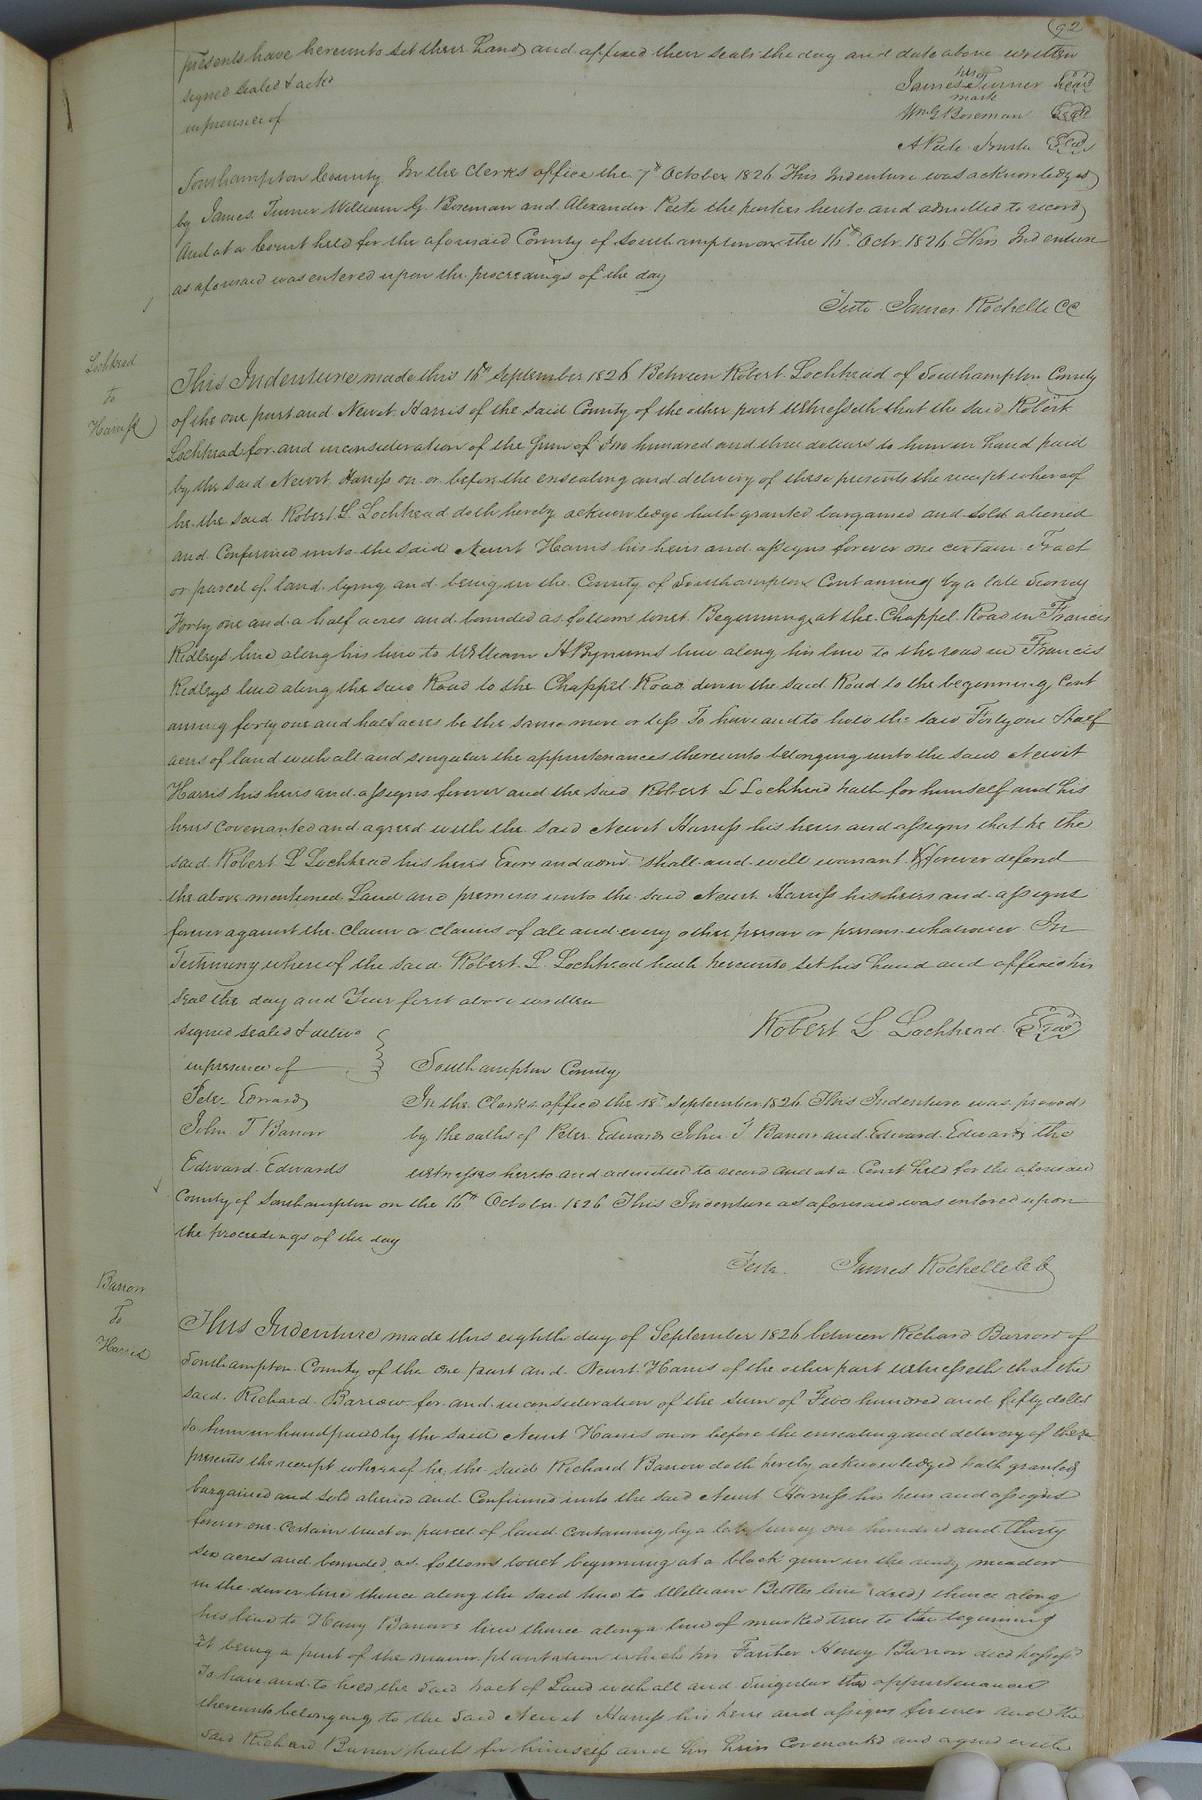 92
presents have hereunto set their hands and affixed their seals the day and date above written
signed sealed & ackd
in presence of
his
James Turner Seal
mark
Wm G Boseman Seal
A Peete Trustee Seal
Southampton County In the Clerks office the 7th October 1826 This Indenture was acknowledged
by James Turner William G. Boseman and Alexander Peete the parties hereto and admitted to record
And at a Court held for the aforesaid County of Southampton on the 16th Octr 1826 This Indenture
as aforesaid was entered upon the proceedings of the day
Teste James Rochelle CC
Lochhead
To
Harriss
This Indenture made this 16th September 1826 Between Robert Lochhead of Southampton County
of the one part and Newit Harris of the said County of the other part Witnesseth that the said Robert
Lochhead for and in consideration of the Sum of Two hundred and three dollars to him in hand paid
by the said Newit Harriss on or before the ensealing and delivery of these presents the receipt whereof
he the said Robert L Lochhead doth hereby acknowledge hath granted bargained and sold aliened
and Confirmed unto the said Newit Harris his heirs and assigns forever one certain Tract
or parcel of land lying and being in the County of Southampton Containing by a late Survey
Forty one and a half acres and bounded as follows towit Beginning at the Chappel Road in Francis
Ridleys line along his line to William H Bynums line along his line to the road in Francis
Ridleys line along the said Road to the Chappel Road down the said Road to the beginning Cont
aining forty one and half acres be the same more or less To have and to hold the said Forty one & half
acres of land with all and singular the appurtenances thereunto belonging unto the said Newit
Harris his heirs and assigns forever and the said Robert L Lochhead hath for himself and his
heirs covenanted and agreed with the said Newit Harriss his heirs and assigns that he the
said Robert L Lochhead his heirs Exors and admr shall and will warrant & forever defend
the above mentioned Land and premises unto the said Newit Harriss his heirs and assigns
forever against the claim or claims of all and every other person or persons whatsoever In
Testimony whereof the said Robert L. Lochhead hath hereunto set his hand and affixed his
seal the day and Year first above written
signed sealed & deliv
in presence of
Robert L. Lochhead Seal
Peter Edwards
John T Barrow
Edward Edwards
Southampton County
In the Clerks office the 18th September 1826 This Indenture was proved
by the oaths of Peter Edwards John T Barrow and Edward Edwards the
witnesses hereto and admitted to record And at a Court held for the aforesaid
County of Southampton on the 16th October 1826 This Indenture as aforesaid was entered upon
the proceedings of the day
Teste James Rochelle C C
Barrow
To
Harriss
This Indenture made this eighth day of September 1826 between Richard Barrow of
Southampton County of the one part and Newit Harris of the other part witnesseth that the
said Richard Barrow for and in consideration of the sum of Five hundred and fifty dolls
to him in hand paid by the said Newit Harris on or before the ensealing and delivery of these
presents the receipt whereof he the said Richard Barrow doth hereby acknowledged hath granted
bargained and sold aliened and Confirmed unto the said Newit Harriss his heirs and assigns
forever one certain tract or parcel of land containing by a late survey one hundred and thirty
six acres and bounded as follows towit beginning at a black gum in the meadow
in the line thence along the said line to William Bittles line (decd) thence along
his line to Henry Barrows line thence along a line of marked trees to the beginning
It being a part of the manor plantation which his Father Henry Barrow decd possessd
To have and to hold the said tract of Land with all and singular the appurtenances
thereunto belonging to the said Newit Harriss his heirs and assigns forever and the
said Richard Barrow hath for himself and his heirs Covenanted and agreed with